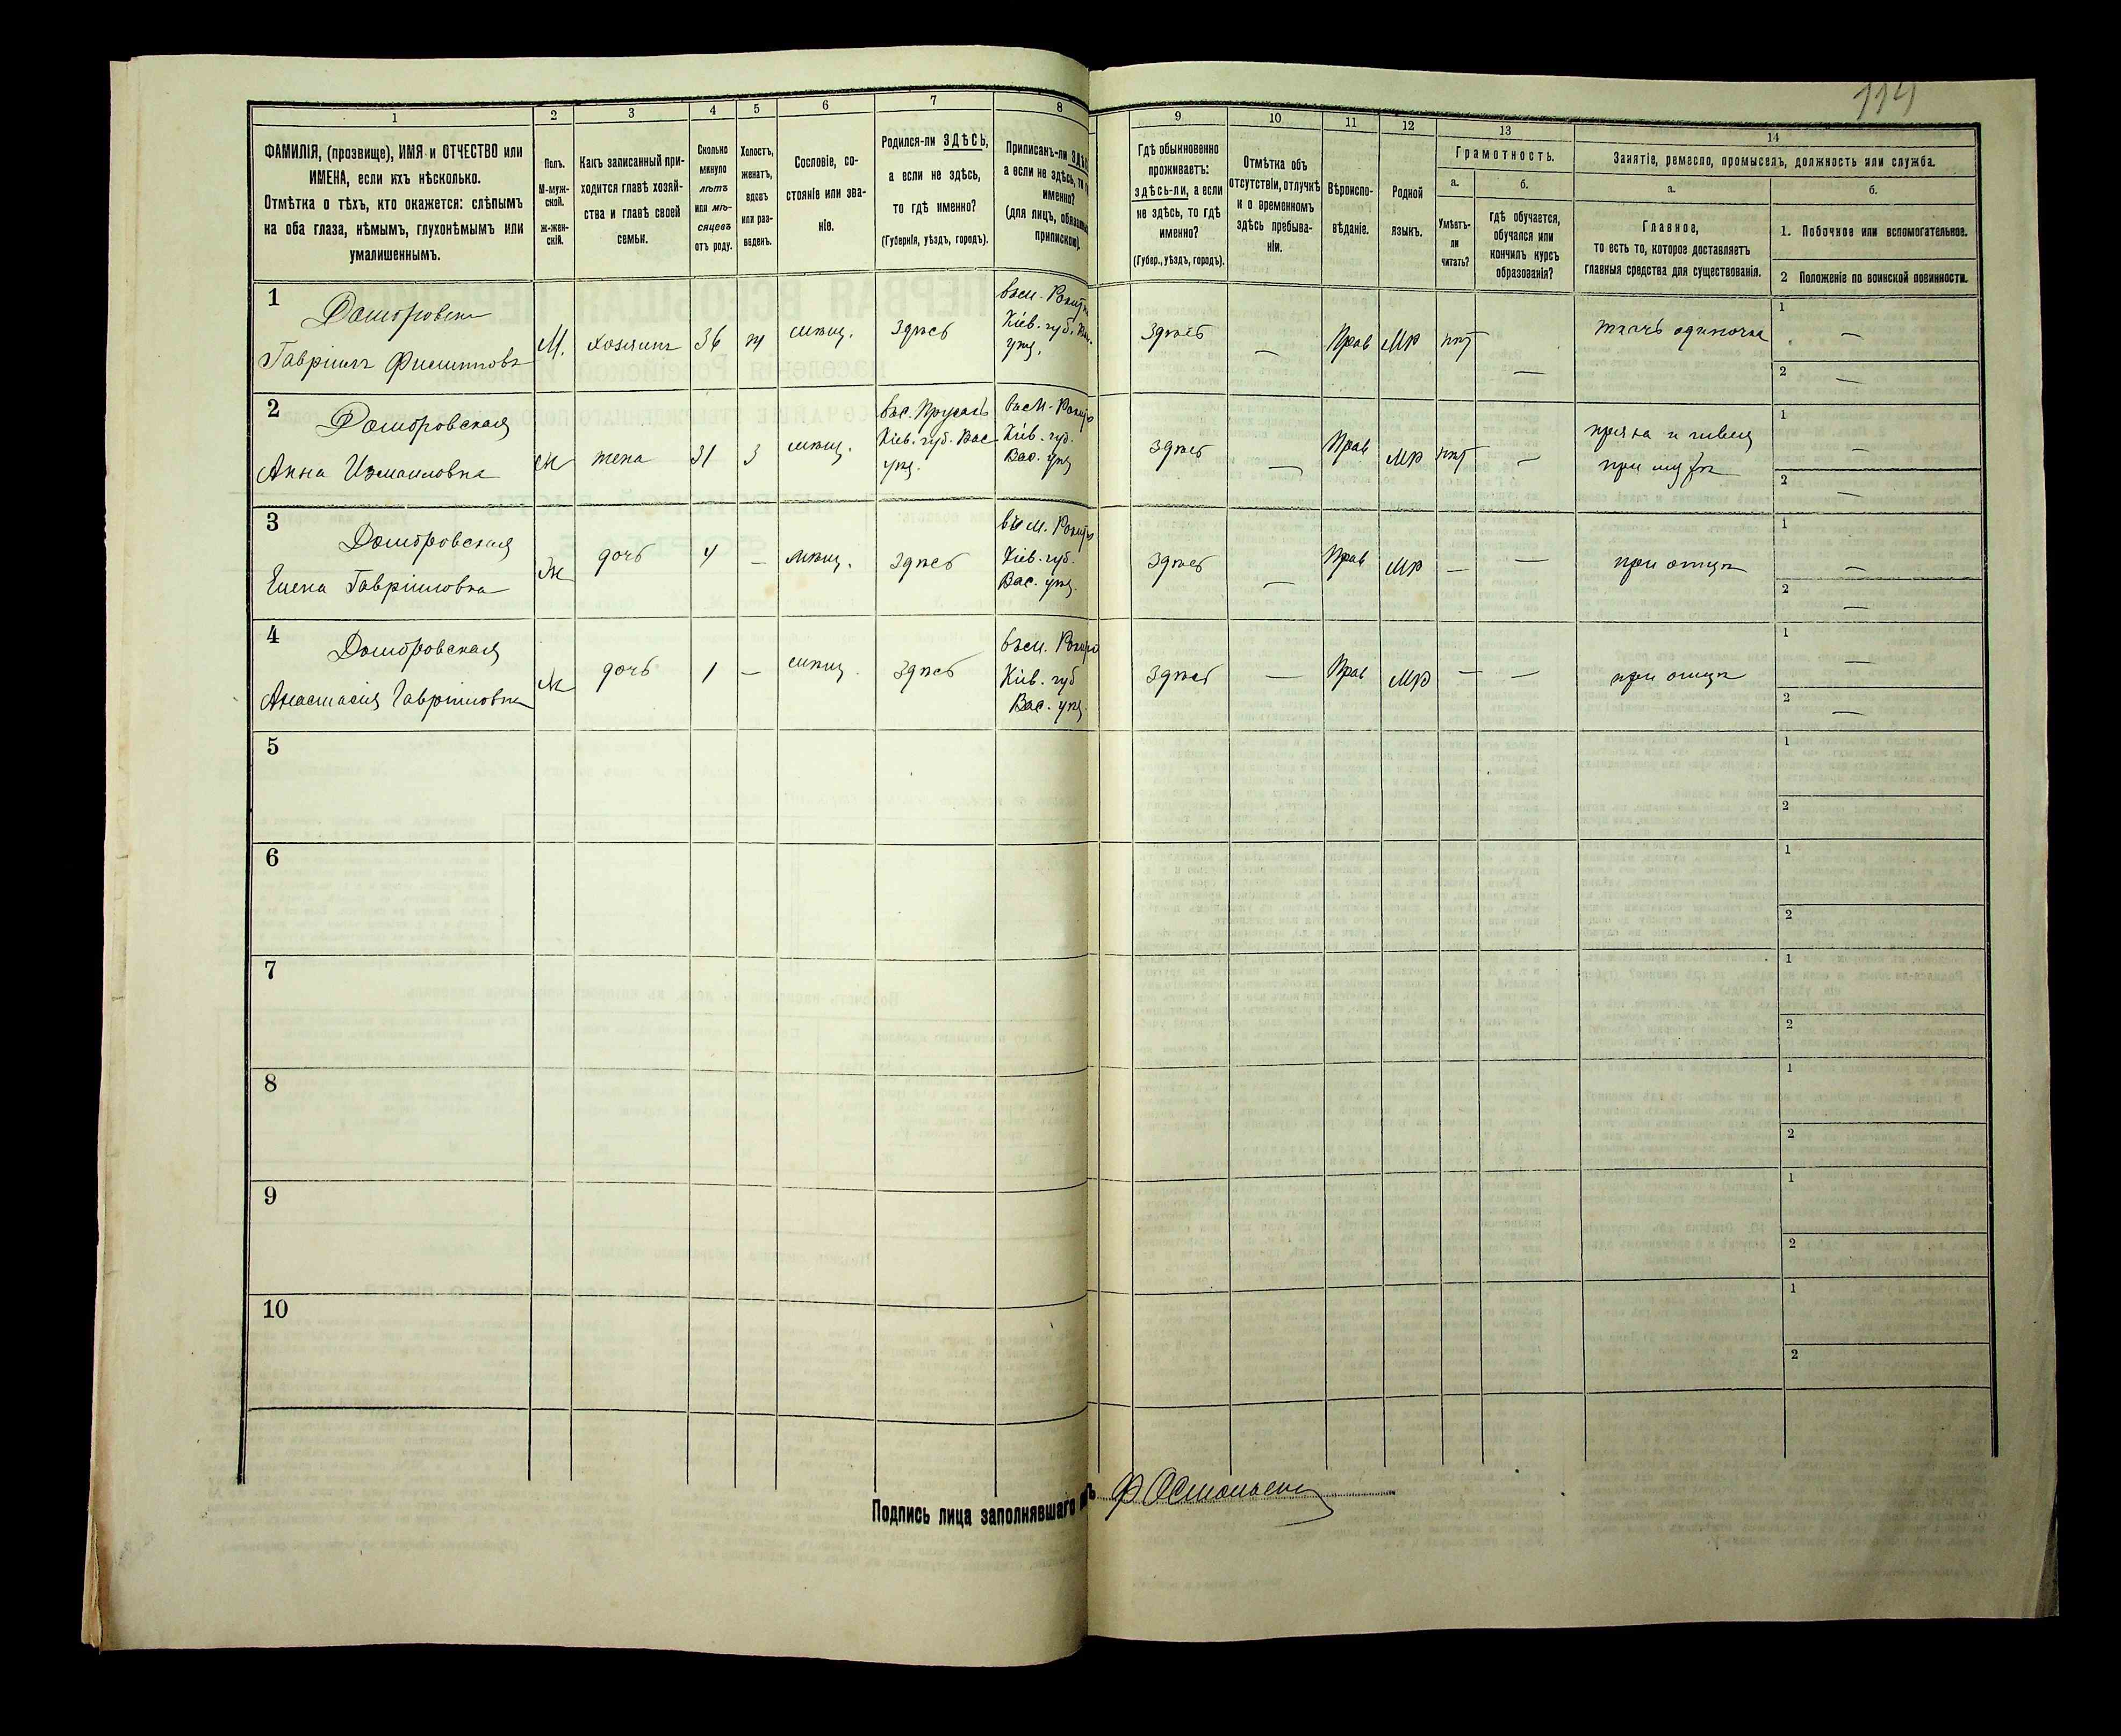 114
1 2 3 4 5 6 7 8 9 10 11 12 13 14
ФАМИЛІЯ, (прозвище), ИМЯ и ОТЧЕСТВО или
ИМЕНА, если ихъ нѣсколько.
Отмѣтка о тѣхъ, кто окажется: слѣпымъ
на оба глаза, нѣмымъ, глухонѣмымъ или
умалишеннымъ.
Полъ.
М-муж-
ской.
Ж-жен-
скій.
Какъ записанный при-
ходится главѣ хозяй-
ства и главѣ своей
семьи.
Сколько
минуло
лѣтъ
или мѣ-
сяцевъ
отъ роду.
Холостъ,
женатъ,
вдовъ
или раз-
веденъ.
Сословіе, со-
стояніе или зва-
ніе.
Родился-ли ЗДѢСЬ,
а если не здѣсь,
то гдѣ именно?
(Губернія, уѣздъ, городъ).
Приписанъ-ли
а если не здѣсь,
именно?
(для лицъ,
припискою).
Гдѣ обыкновенно
проживаетъ:
здѣсь-ли, а если
не здѣсь, то гдѣ
именно?
(Губер., уѣздъ, городъ).
Отмѣтка объ
отсутствіи, отлучкѣ
и о временномъ
здѣсь пребыва-
ніи.
Вѣроиспо-
вѣданіе.
Родной
языкъ.
Грамотность.
а.
Умѣетъ-
ли
читать?
б.
гдѣ обучается,
обучался или
кончилъ курсъ
образованія?
Занятіе, ремесло, промыселъ, должность или служба.
а.
Главное,
то есть то, которое доставляетъ
главныя средства для существованія.
б.
1. Побочное или вспомогательное.
2 Положеніе по воинской повинности.
1
Гавріилъ Филипповъ
М. хозяинъ 36 ж мѣщ. Здѣсь
Кіев. губ.
уѣз.
Здѣсь — Прав МР нѣт — ткачъ одиночка
1 —
2 —
2
Анна Измаиловна
Ж жена 31 З мѣщ.
Кіев. губ. Вас
уѣз.
Кіев. губ.
Вас. уѣз
Здѣсь — Прав МР нѣт — пряха и швея
при мужѣ
1 —
2 —
3
Елена Гавріиловна
Ж дочь 4 — мѣщ. Здѣсь
Кіев. губ.
Вас. уѣз.
Здѣсь — Прав МР — — при отцѣ
1 —
2 —
4
Анастасія Гавріиловна
Ж дочь 1 — мѣщ. Здѣсь
Кіев. губ
Вас. уѣз.
Здѣсь — Прав МР — — при отцѣ
1 —
2 —
5
1
2
6
1
2
7
1
2
8
1
2
9
1
2
10
1
2
Подпись лица заполнявшаго